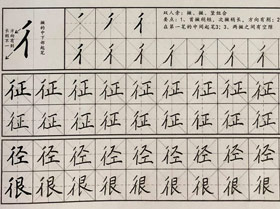 双人旁：撇、撇、竖组合
要点：1、首撇稍短，次撇稍长，方向有别；2、
在第一笔的中间起笔；3、两撇之间有空隙
彳
彳 彳 彳 彳 彳 彳 彳
征 征 征 征 征 征 征 征 征
征 征 征 征 征 征 征 征 征
径 径 径 径 径 径 径 径 径
很 很 很 很 很 很 很 很 很